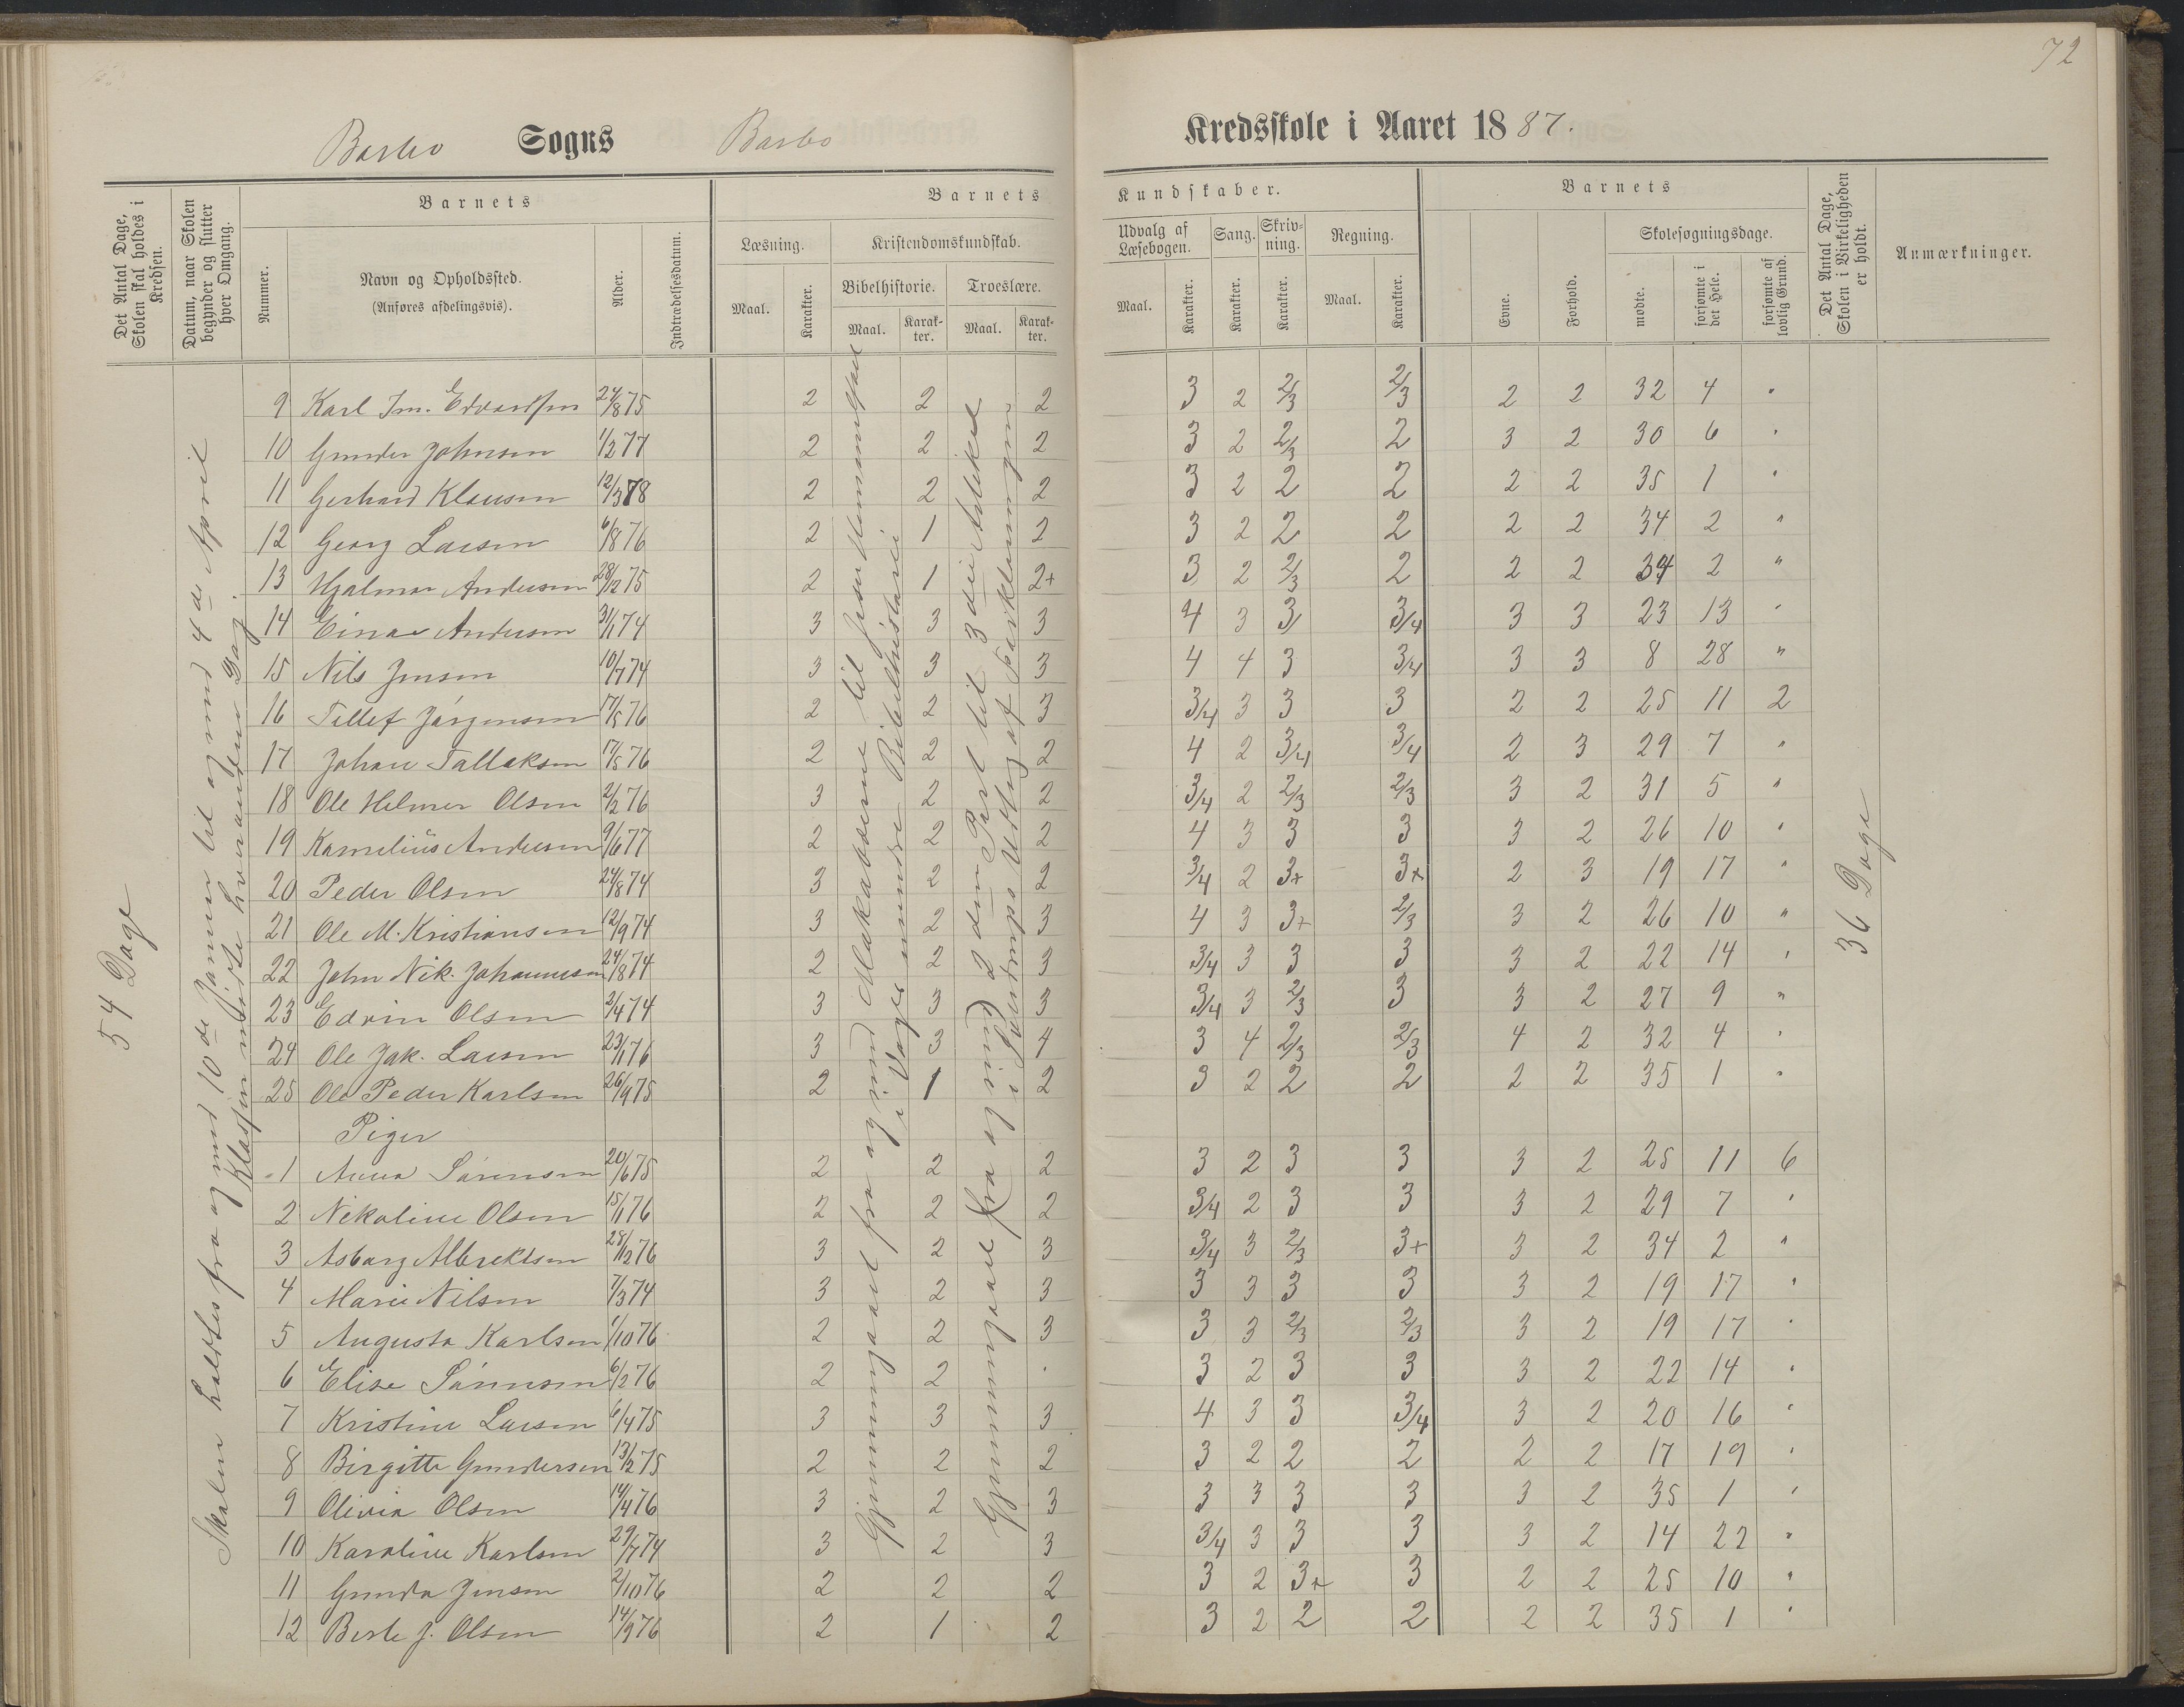 72
Barbo Sogns Barbo Kredsskole i Aaret 1887.
Det Antal Dage, Skolen skal holdes i Kredsen.
Datum, naar Skolen begynder og slutter hver Omgang.
Barnets
Nummer.
Navn og Opholdssted.
(Anføres afdelingsvis).
Alder.
Indtrædelsesdatum.
Barnets Kundskaber.
Læsning.
Maal. Karakter.
Kristendomskundskab.
Bibelhistorie. Troeslære.
Maal. Karakter. Maal. Karakter.
Udvalg af Læsebogen.
Maal. Karakter.
Sang.
Karakter.
Skrivning.
Karakter.
Regning.
Maal. Karakter.
Barnets
Evne.
Forhold.
Skolesøgningsdage.
mødte.
forsømte i det Hele.
forsømte af lovlig Grund.
Det Antal Dage, Skolen i Virkeligheden er holdt.
Anmærkninger.
54 Dage
Skolen holdtes fra og med 10de Januar til og med 4de April
Klassen mødte hveranden Dag.
Gjennemgaaet fra og med Makabæerne til Jesu Himmelfart
i Vogts mindre Bibelhistorie
Gjennemgaaet fra og med 2den Part til 3die Artikel
i Pontoppidans Udtog af Forklaringen
36 Dage
9 Karl Im. Edvardsen 24/8 75 2 2 2 3 2 2/3 2/3 2 2 32 4 "
10 Gunder Johnsen 1/2 77 2 2 2 3 2 2/3 2 3 2 30 6 "
11 Gerhard Klausen 12/3 78 2 2 2 3 2 2 2 2 2 35 1 "
12 Georg Larsen 6/8 76 2 1 2 3 2 2 2 2 2 34 2 "
13 Hjalmar Andersen 28/12 75 2 1 2+ 3 2 2/3 2 2 2 34 2 "
14 Einar Andersen 31/1 74 3 3 3 4 3 3 3/4 3 3 23 13 "
15 Nils Jensen 10/7 74 3 3 3 4 4 3 3/4 3 3 8 28 "
16 Tellef Jørgensen 17/5 76 2 2 3 3/4 3 3 3 2 2 25 11 2
17 Johan Tallaksen 17/5 76 2 2 2 4 2 3/4 3/4 2 3 29 7 "
18 Ole Helmer Olsen 2/2 76 3 2 2 3/4 2 2/3 2/3 3 2 31 5 "
19 Kornelius Andersen 9/6 77 2 2 2 4 3 3 3 3 2 26 10 "
20 Peder Olsen 24/8 74 3 2 2 3/4 2 3+ 3+ 2 3 19 17 "
21 Ole M. Kristiansen 12/9 74 3 2 3 4 3 3+ 2/3 3 2 26 10 "
22 John Nik. Johannesen 24/8 74 2 2 3 3/4 3 3 3 3 2 22 14 "
23 Edvin Olsen 2/4 74 3 3 3 3/4 3 2/3 3 3 2 27 9 "
24 Ole Jak. Larsen 23/1 76 3 3 4 3 4 2/3 2/3 4 2 32 4 "
25 Ole Peder Karlsen 26/9 75 2 1 2 3 2 2 2 2 2 35 1 "
Piger
1 Anna Sørensen 20/6 75 2 2 2 3 2 3 3 3 2 25 11 6
2 Nikoline Olsen 15/1 76 2 2 2 3/4 2 3 3 3 2 29 7 "
3 Asborg Albrektsen 28/12 76 3 2 3 3/4 3 2/3 3+ 3 2 34 2 "
4 Marie Nilsen 7/3 74 3 2 3 3 3 3 3 3 2 19 17 "
5 Augusta Karlsen 1/10 76 2 2 3 3 3 2/3 2/3 3 2 19 17 "
6 Elise Sørensen 6/2 76 2 2 . 3 2 3 3 3 2 22 14 "
7 Kristine Larsen 6/4 75 3 3 3 4 3 3 3/4 3 2 20 16 "
8 Birgitte Gundersen 13/2 75 2 2 2 3 2 2 2 2 2 17 19 "
9 Olivia Olsen 14/4 76 3 2 3 3 3 3 3 3 2 35 1 "
10 Karoline Karlsen 29/7 74 3 2 3 3/4 3 3 3 3 2 14 22 "
11 Gunda Jensen 2/10 76 2 2 2 3 2 3+ 3 2 2 25 10 "
12 Berte J. Olsen 14/9 76 2 1 2 3 2 2 2 2 2 35 1 "